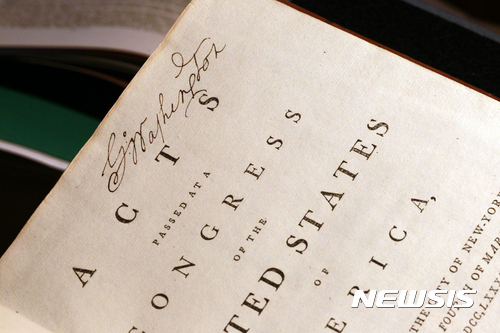 G:Washington
ACTS
PASSED AT A
CONGRESS
OF THE
UNITED STATES
OF
AMERICA,
THE CITY OF NEW-YORK
FOURTH OF MAR
NEWSIS